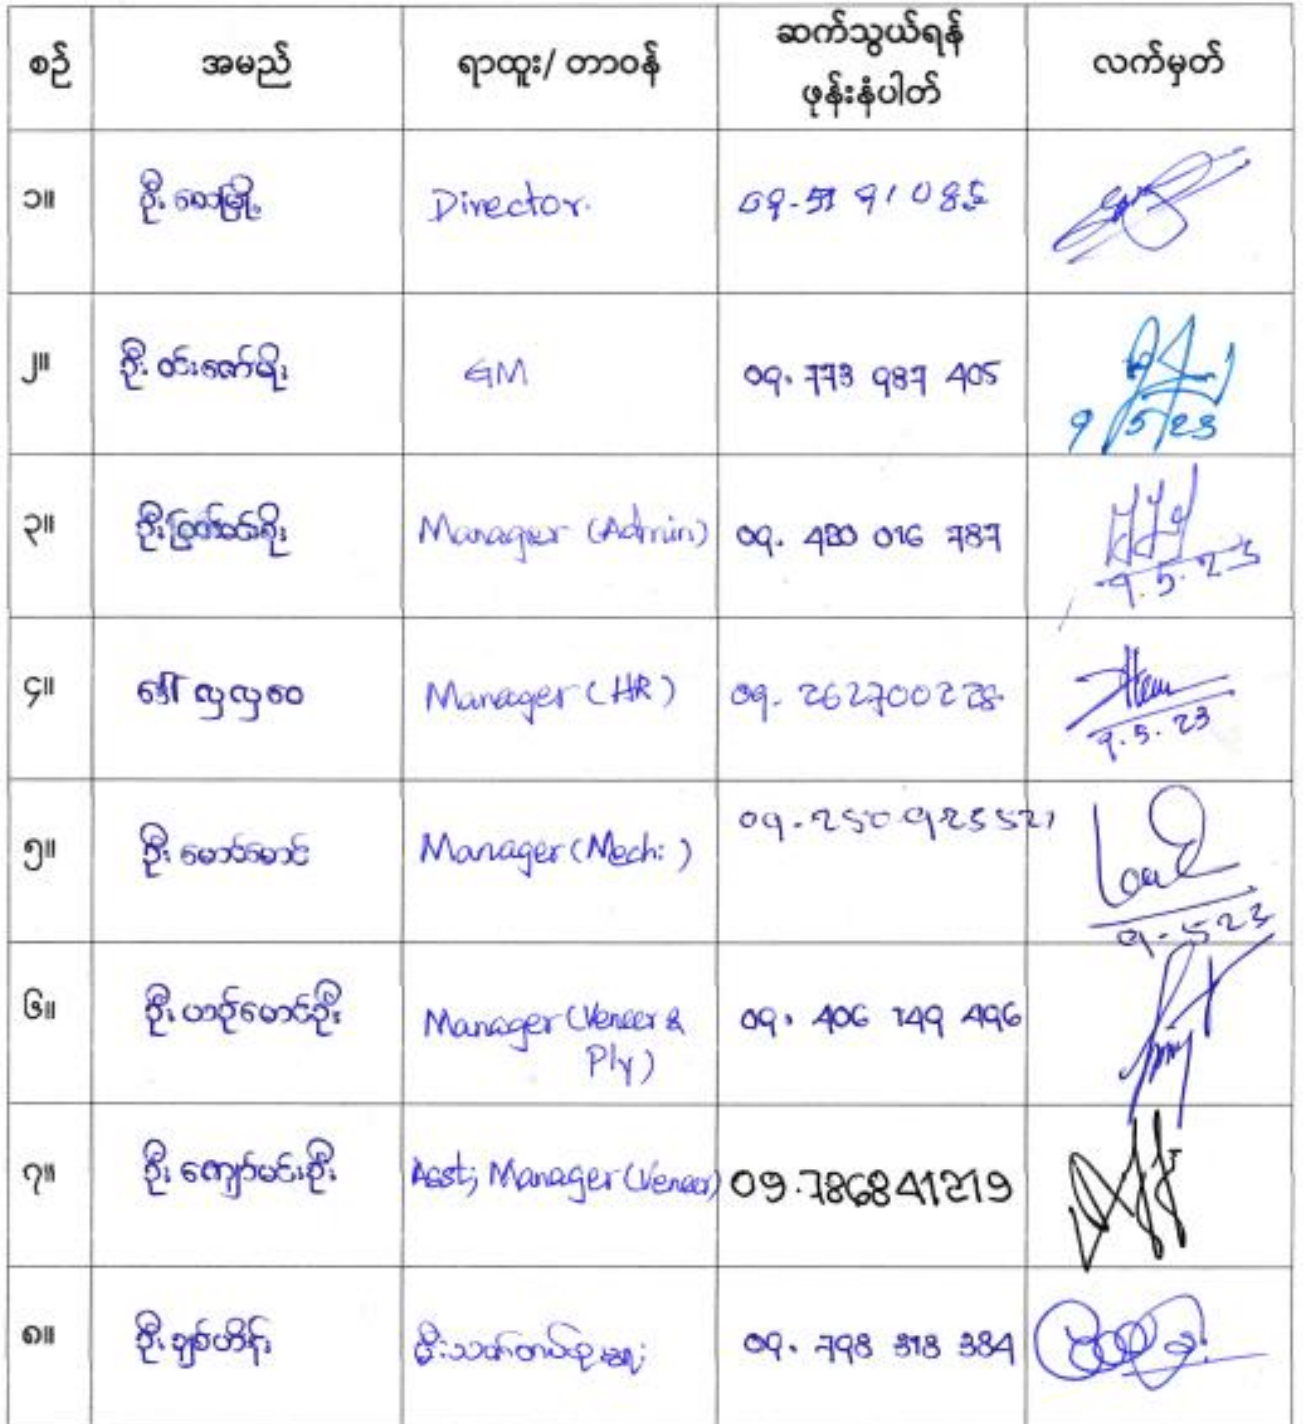 စဉ် အမည် ရာထူး/ တာဝန် ဆက်သွယ်ရန် ဖုန်းနံပါတ် လက်မှတ်
၁။ ဦး Director. 09-51 91085
၂။ ဦး ဝင်းဇော်မိုး GM 09. 773 987 405
9/5/23
၃။ ဦး Manager (Admin) 09. 420 016 787
9.5.23
၄။ ဒေါ် လှလှဝေ Manager (HR) 09. 262700228
9.5.23
၅။ ဦး မောင်မောင် Manager (Mech: ) 09.250923521
9-5 23
၆။ ဦး ဟာဉ်မောင်ဦး Manager (Veneer &
Ply) 09. 406 149 496
၇။ ဦး ကျော်မင်းဦး Asst; Manager (Veneer) 09.786841219
၈။ ဦး ချစ်ဟိန်း 09. 798 318 384